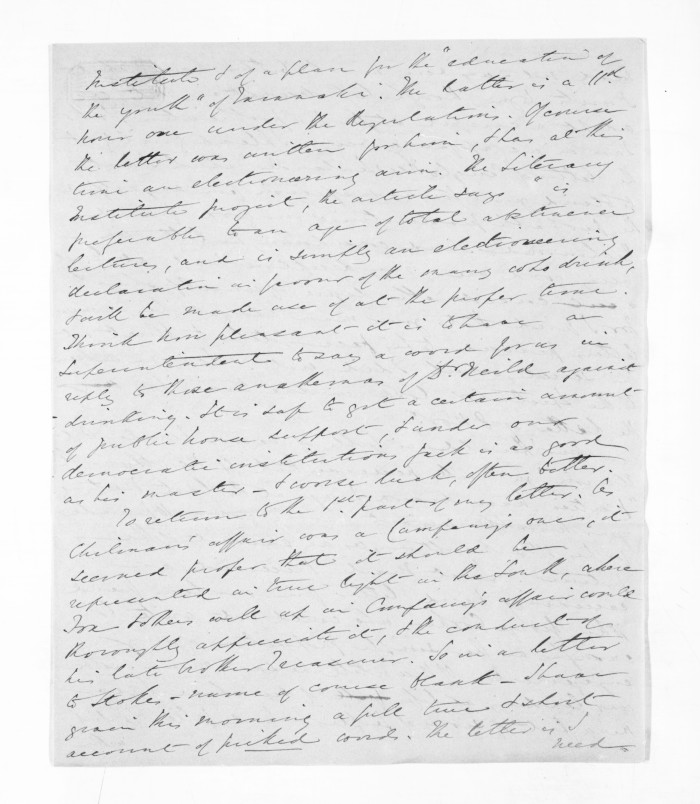 Institute & of a plan for the "education of
the youth" of Taranaki. The latter is a 11th
hour one under the Regulations. Of course
the letter was written for him, & has at this
time an electioneering aim. The Literary
Institute project, the article says "is
preferable to an age of total abstinence
lectures, and is simply an electioneering
declaration in favour of the many who drink,
& will be made use of at the proper time.
Think how pleasant it is to have a
Superintendent to say a word for us in
reply to those anathemas of Dr Neild against
drinking. It is safe to get a certain amount
of public house support, & under our
democratic institutions Jack is as good
as his master - & worse luck, often better.
To return to the 1st. part of my letter. As
Chilman's affair was a Company's one, it
seemed proper that it should be
represented in true light in the South, where
Fox & others well up in Company's affairs could
thoroughly appreciate it, & the conduct of
his late brother Treasurer. So in a letter
to Stokes - name of course blank - I have
given this morning a full true & short
account of picked words. The letter is I
need